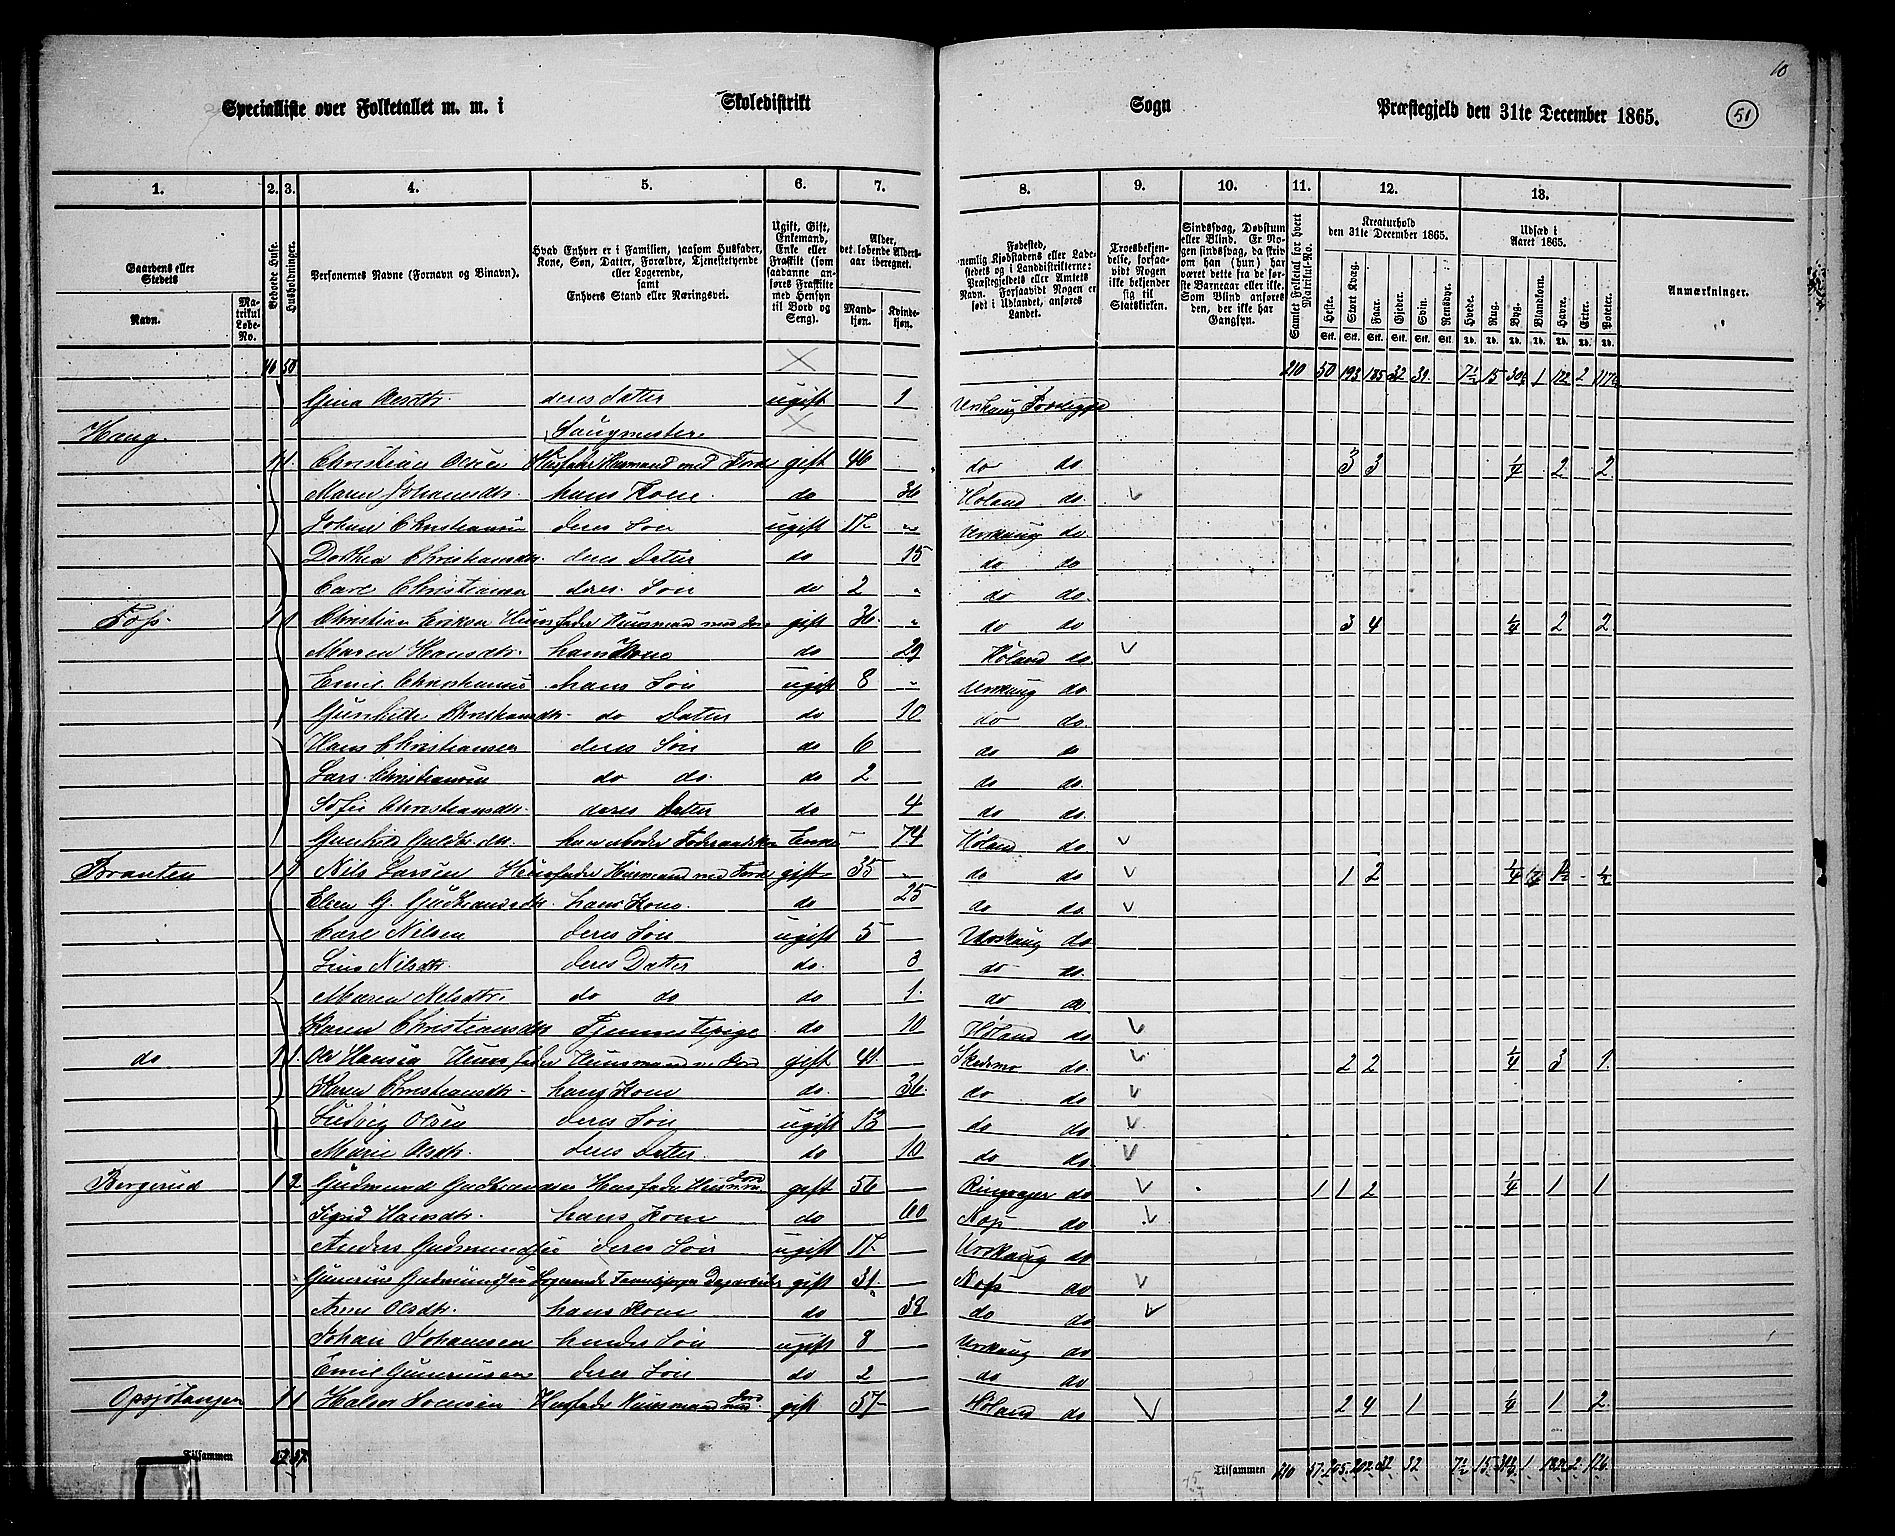 10
51
Specialliste over Folketallet m. m. i Skoledistrikt Sogn Præstegjeld den 31te December 1865.
1. 2. 3. 4. 5. 6. 7. 8. 9. 10. 11. 12. 13.
Gaardens eller Stedets
Navn.
Matrikul Løbe-No.
Beboede Huse.
Husholdninger.
Personernes Navne (Fornavn og Binavn).
Hvad Enhver er i Familien, saasom Husfader, Kone, Søn, Datter, Forældre, Tjenestetyende eller Logerende, samt Enhvers Stand eller Næringsvei.
Ugift, Gift, Enkemand, Enke eller Fraskilt (som saadanne anføres Fraskilte med Hensyn til Bord og Seng).
Alder, det løbende Aldersaar iberegnet.
Mandkjøn. Kvindekjøn.
Fødested, nemlig Kjøbstadens eller Ladestedets og i Landdistrikterne: Præstegjeldets eller Amtets Navn. Forsaavidt Nogen er født i Udlandet, anføres Landet.
Troesbekjendelse, forsaavidt Nogen ikke bekjender sig til Statskirken.
Sindssvag, Døvstum eller Blind. Er Nogen sindssvag, da skrives om han (hun) har været dette fra de første Barneaar eller ikke. Som Blind anføres den, der ikke har Gangsyn.
Samlet Folketal for hvert Matrikul-No.
Kreaturhold den 31te December 1865.
Heste. Stort Kvæg. Faar. Gjeder. Svin. Rensdyr.
Udsæd i Aaret 1865.
Hvede. Rug. Byg. Blandkorn. Havre. Erter. Poteter.
Anmærkninger.
Stk. Stk. Stk. Stk. Stk. Stk. Td. Td. Td. Td. Td. Td. Td.
46 50 210 50 193 185 32 31 7½ 15 1 122 2
Gina Olsdtr. deres Datter ugift 9 Urskaug
Haug. Saugmester
1 1 Christian Olsen Husfader Huusmand med Jord gift 46 do do 3 3 ¼ 2 2
Maren Johansdtr. hans Kone do 36 Høland do
Johan Christiansen deres Søn ugift 17 Urskaug do
Dorthea Christiansdtr. deres Datter do 15 do do
Carl Christiansen deres Søn do 2 do do
Foss. 1 1 Christian Eriksen Huusfader Huusmand med Jord gift 36 do do 3 4 ¼ 2 2
Maren Hansdtr. hans Kone do 29 Høland do
Emil Christiansen hans Søn ugift 8 Urskaug do
Gunhilde Christiansdtr. do Datter do 10 do do
Hans Christiansen deres Søn do 6 do do
Lars Christiansen do do do 2 do do
Sofie Christiansdtr. deres Datter do 4 do do
Gunhild Enke 74 Høland do
Braaten 1 1 Nils Larsen Huusfader Huusmand med Jord gift 35 do do 1 2 ¼ ¼ 1½ ½
Elen G. Gudbrandsdtr. hans Kone do 25 do do
Carl Nilsen deres Søn ugift 5 Urskaug do
Lina Nilsdtr. deres Datter do 3 do do
Maren Nilsdtr. do do do 1 do do
Karen Christiansdtr. Tjenestepige do 10 Høland do
do 1 1 Ole Hansen Huusfader Huusmand m. Jord gift 41 Skedsmo do 2 2 ¼ 3 1
Karen Christiansdtr. hans Kone do 36 do do
Ludvig Olsen deres Søn ugift 13 do do
Marie Olsdtr. deres Datter do 10 do do
Bergerud 1 2 Gudmund Gudbrandsen Husfader Huusm. m. Jord gift 56 Ringsager do 1 1 2 ¼ 1 1
Sigrid Hansdtr. hans Kone do 60 Næs do
Anders Gudmundsen deres Søn ugift 17 Urskaug do
Gunerius Gudmundsen Logerende gift 31 Næs do
Anne Olsdtr. hans Kone do 38 do do
Johan Johansen hendes Søn ugift 8 Urskaug do
Emil Gunerusen deres Søn do 2 do do
Opsjøtangen 1 1 Halvor Husfader Huusmand med Jord gift 57 Høland do 2 4 1 ¼ 1 2
Tilsammen 52 57 Tilsammen 210 57 205 202 32 32 7½ 15 1 2 126